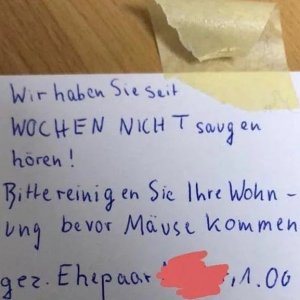 Wir haben Sie seit
WOCHEN NICHT saugen
hören!
Bitte reinigen Sie Ihre Wohn-
ung bevor Mäuse kommen
gez. Ehepaar , 1.OG